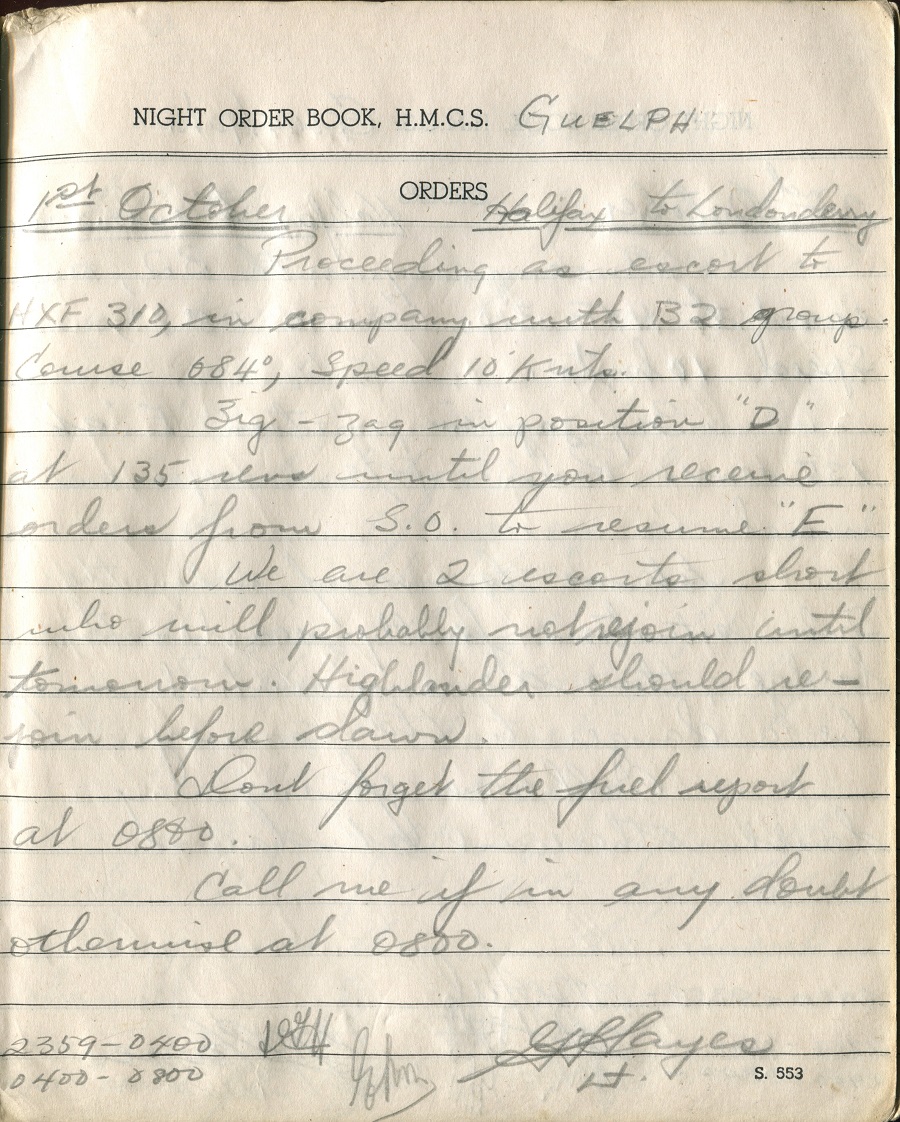 NIGHT ORDER BOOK, H.M.C.S. GUELPH
ORDERS
1st October Halifax to Londonderry
Proceeding as escort to
HXF 310, in company with B2 group.
Course 084°, Speed 10 Knts.
Zig-zag in position "D"
at 135 revs until you receive
orders from S.O. to resume "E"
We are 2 escorts short
who will probably not rejoin until
tomorrow. Highlander should re-
join before dawn.
Dont forget the fuel report
at 0800.
Call me if in any doubt
otherwise at 0800.
2359-0400
GHHayes
0400-0800
Lt.
S. 553